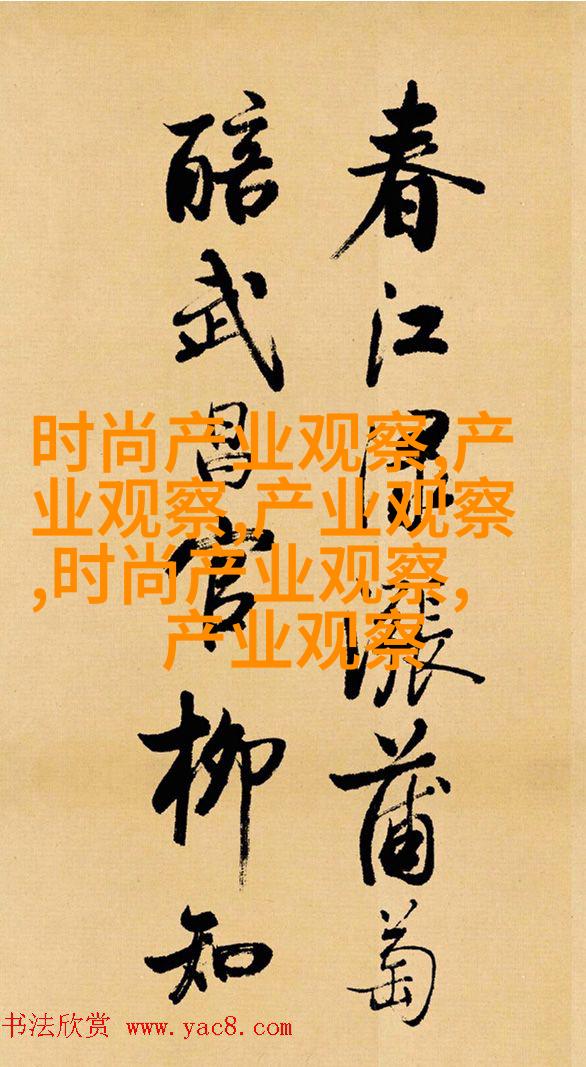 春江漲蒲萄
醅武昌官柳知
时尚产业观察,产
业观察,产业观察
,时尚产业观察,
产业观察
书法欣赏 www.yac8.com